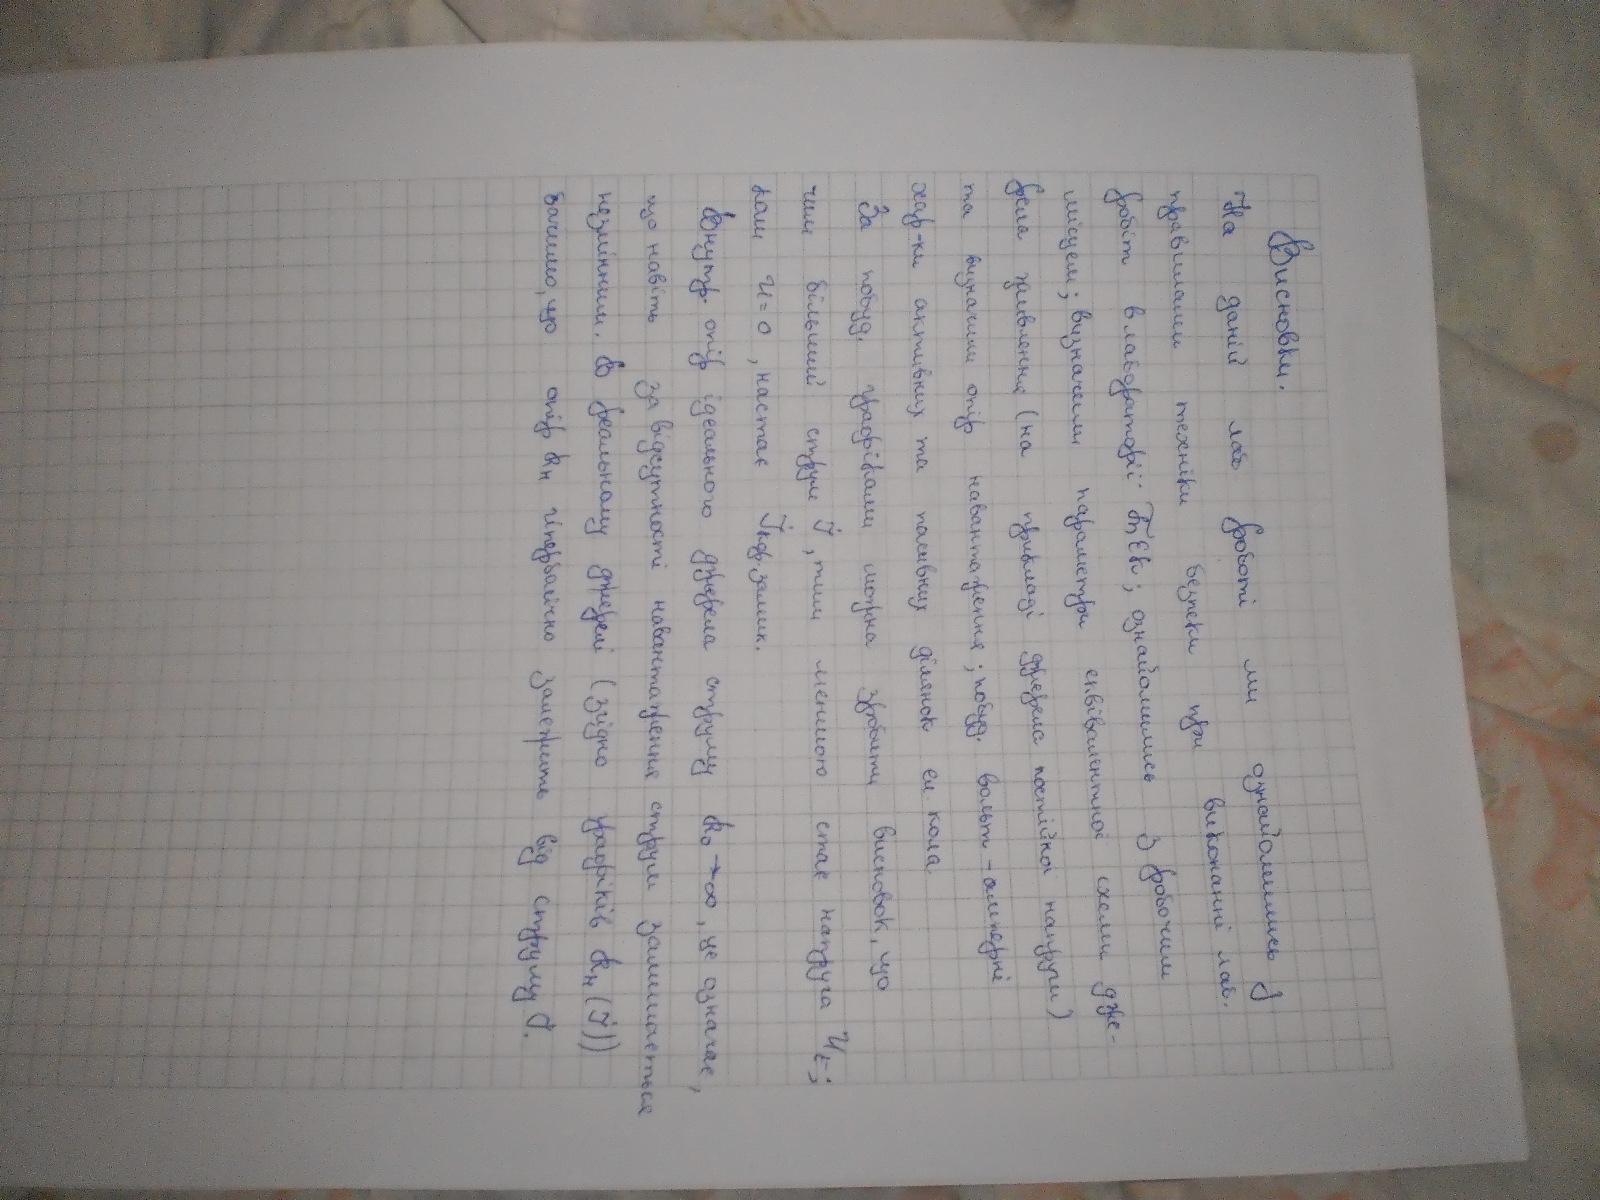 Висновки.
На даній лаб роботі ми ознайомились з
правилами техніки безпеки при виконанні лаб.
робіт в лабораторії ТЕК; ознайомились з робочим
місцем; визначили параметри еквівалентної схеми дже-
рела живлення (на прикладі джерела постійної напруги)
та визначили опір навантаження; побуд. вольт-амперні
хар-ки активних та пасивних ділянок ел кола.
За побуд. графіками можна зробити висновок, що
чим більший струм I, тим меншою стає напруга U;
коли U=0, настає Iкор.замик.
Внутр. опір ідеального джерела струму R₀→∞, це означає,
що навіть за відсутності навантаження струм залишається
незмінним. В реальному джерелі (згідно графіків Rн(I))
бачимо, що опір Rн гіперболічно залежить від струму I.